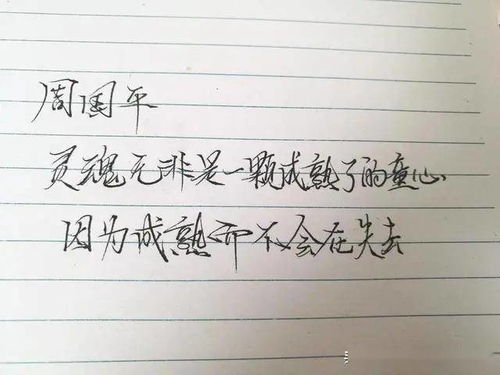 周国平
灵魂无非是一颗成熟了的童心
因为诚熟而不会在失去